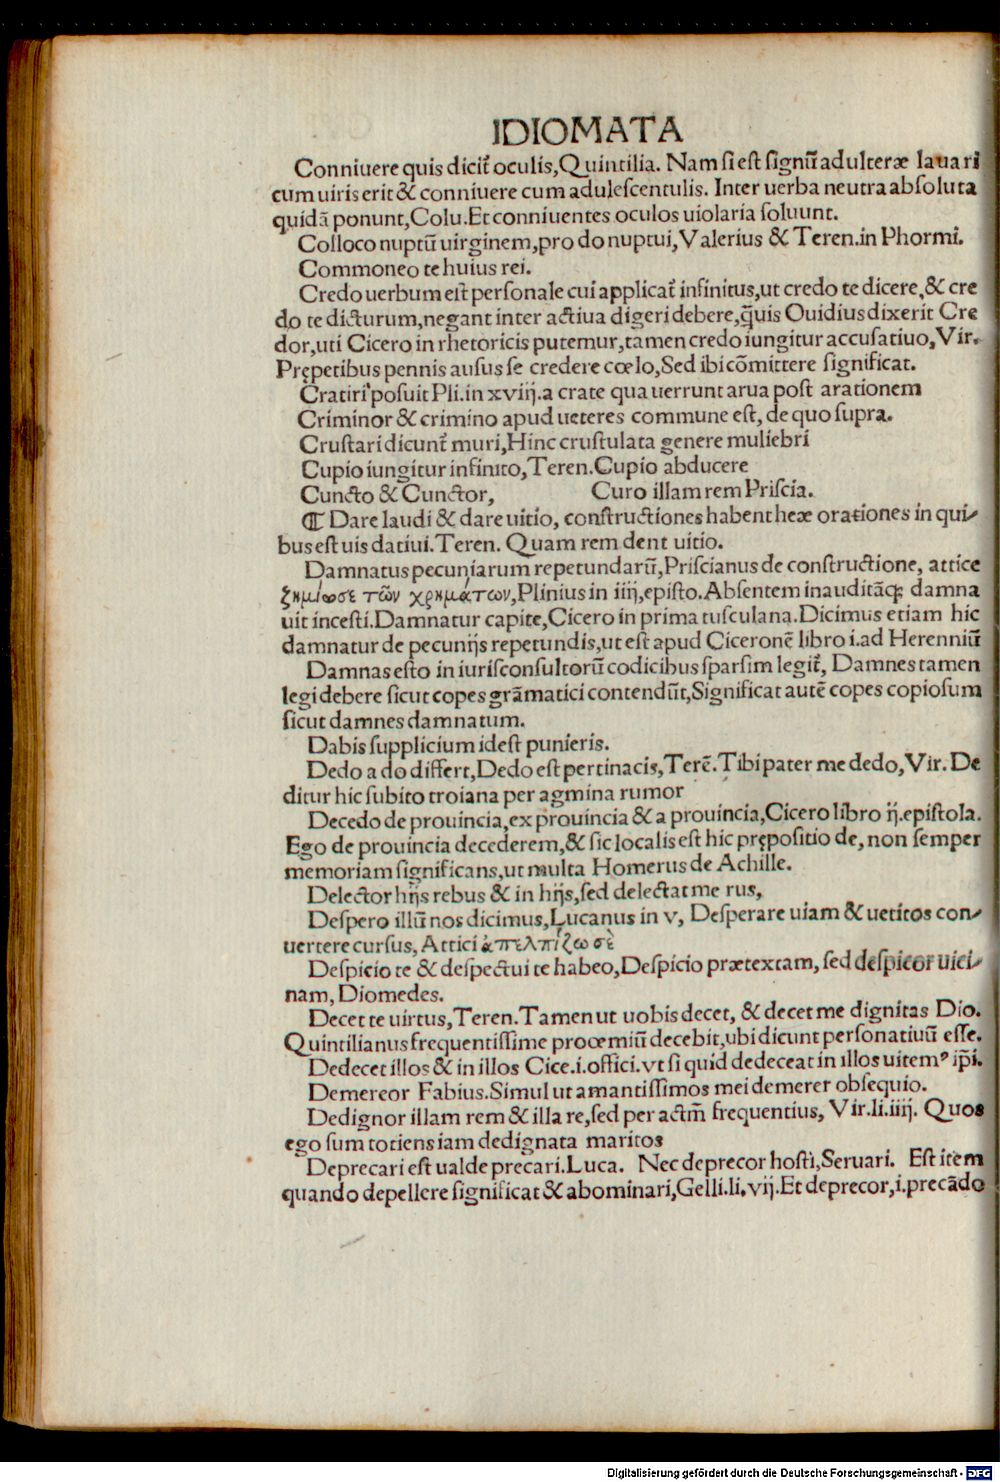 IDIOMATA
Conniuere quis dicit᷑ oculis,Quintilia. Nam si est signũ adulteræ lauari
cum uiris erit & conniuere cum adulescentulis. Inter uerba neutra absoluta
quidã ponunt,Colu.Et conniuentes oculos uiolaria soluunt.
Colloco nuptũ uirginem,pro do nuptui,Valerius & Teren.in Phormi.
Commoneo te huius rei.
Credo uerbum est personale cui applicat᷑ infinitus,ut credo te dicere,& cre
do te dicturum,negant inter actiua digeri debere,q̃uis Ouidius dixerit Cre
dor,uti Cicero in rhetoricis putemur,tamen credo iungitur accusatiuo,Vir.
Prępetibus pennis ausus se credere cœlo,Sed ibi cõmittere significat.
Cratiri posuit Pli.in xviij.a crate qua uerrunt arua post arationem
Criminor & crimino apud ueteres commune est, de quo supra.
Crustari dicunt᷑ muri,Hinc crustulata genere muliebri
Cupio iungitur infinito,Teren.Cupio abducere
Cuncto & Cunctor, Curo illam rem Priscia.
¶ Dare laudi & dare uitio, constructiones habent heæ orationes in qui-
bus est uis datiui.Teren. Quam rem dent uitio.
Damnatus pecuniarum repetundarũ,Priscianus de constructione, attice
ζημίωσε τῶν χρημάτων,Plinius in iiij,episto.Absentem inauditãq; damna
uit incesti.Damnatur capite,Cicero in prima tusculana.Dicimus etiam hic
damnatur de pecunijs repetundis,ut est apud Ciceronẽ libro i.ad Herenniũ
Damnas esto in iurisconsultorũ codicibus sparsim legit᷑, Damnes tamen
legi debere sicut copes grãmatici contendũt,Significat autẽ copes copiosum
sicut damnes damnatum.
Dabis supplicium idest punieris.
Dedo a do differt,Dedo est pertinacis,Terẽ.Tibi pater me dedo,Vir.De
ditur hic subito troiana per agmina rumor
Decedo de prouincia,ex prouincia & a prouincia,Cicero libro ij.epistola.
Ego de prouincia decederem,& sic localis est hic prępositio de, non semper
memoriam significans,ut multa Homerus de Achille.
Delector hijs rebus & in hijs,sed delectat me rus,
Despero illũ nos dicimus,Lucanus in v, Desperare uiam & uetitos con-
uertere cursus, Attici ἀπελπίζω σὲ
Despicio te & despectui te habeo,Despicio prætextam, sed despicor uici-
nam, Diomedes.
Decet te uirtus,Teren.Tamen ut uobis decet, & decet me dignitas Dio.
Quintilianus frequentissime procemiũ decebit,ubi dicunt personatiuũ esse.
Dedecet illos & in illos Cice.i.offici.vt si quid dedeceat in illos uitemꝰ ip̃i.
Demereor Fabius.Simul ut amantissimos mei demerer obsequio.
Dedignor illam rem & illa re,sed per actm̃ frequentius, Vir.li.iiij. Quos
ego sum totiens iam dedignata maritos
Deprecari est ualde precari.Luca. Nec deprecor hosti,Seruari. Est item
quando depellere significat & abominari,Gelli.li.vij.Et deprecor,i.precãdo
Digitalisierung gefördert durch die Deutsche Forschungsgemeinschaft - DFG